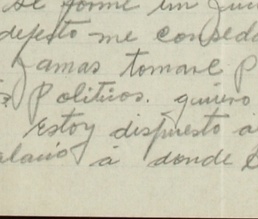 se forme un jui
defecto me conseda
jamas tomare p
politicos. quiero
Estoy dispuesto a
alacio á donde